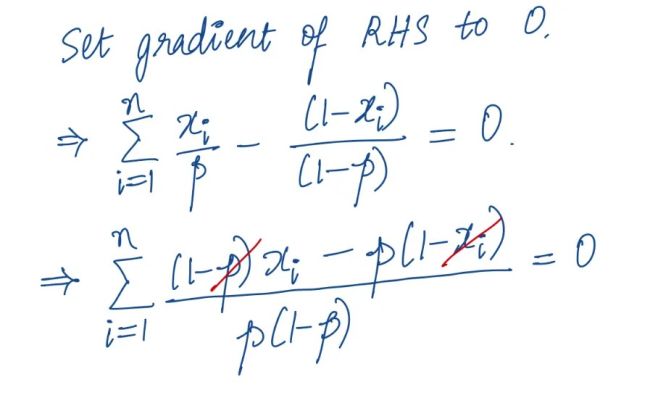 Set gradient of RHS to 0.
⇒ ∑_{i=1}^{n} x_i/p − (1−x_i)/(1−p) = 0.
⇒ ∑_{i=1}^{n} ((1−p)x_i − p(1−x_i))/(p(1−p)) = 0